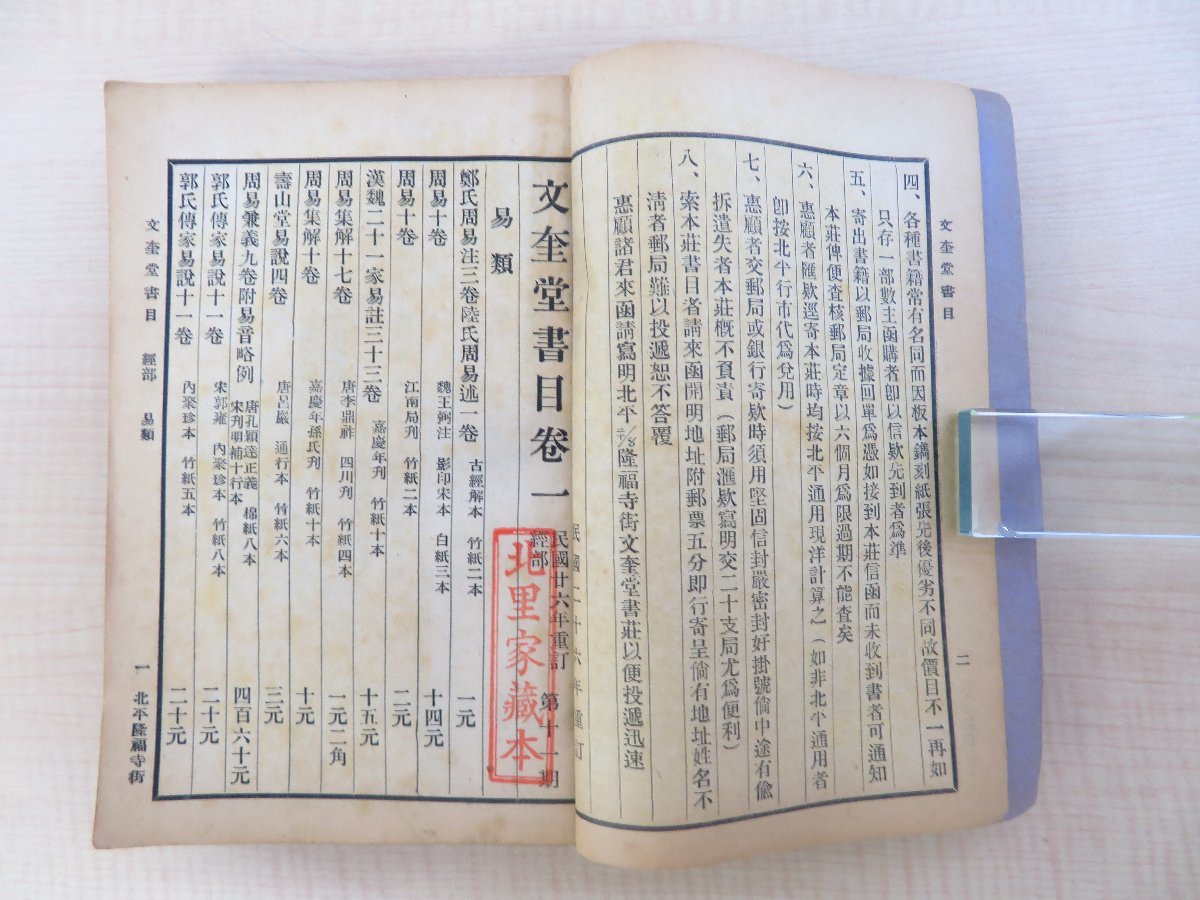 文奎堂書目
二
四、各種書籍常有名同而因板本鐫刻紙張先後優劣不同故價目不一再如
只存一部數主函購者卽以信欵先到者爲準
五、寄出書籍以郵局收據回單爲憑如接到本莊信函而未收到書者可通知
本莊俾便查核郵局定章以六個月爲限過期不能查矣
六、惠顧者匯欵逕寄本莊時均按北平通用現洋計算之（如非北平通用者
卽按北平行市代爲兌用）
七、惠顧者交郵局或銀行寄欵時須用堅固信封嚴密封好掛號倘中途有偸
拆遺失者本莊概不負責（郵局滙欵寫明交二十支局尤爲便利）
八、索本莊書目者請來函開明地址附郵票五分卽行寄呈倘有地址姓名不
淸者郵局難以投遞恕不答覆
惠顧諸君來函請寫明北平隆福寺街文奎堂書莊以便投遞迅速
民國二十六年重訂
文奎堂書目卷一
經部
民國廿六年重訂 第十一期
北里家藏本
易類
鄭氏周易注三卷陸氏周易述一卷 古經解本 竹紙二本 一元
周易十卷 魏王弼注 影印宋本 白紙三本 十四元
周易十卷 江南局刋 竹紙二本 二元
漢魏二十一家易註三十三卷 嘉慶年刋 竹紙十本 十五元
周易集解十七卷 唐李鼎祚 四川刋 竹紙四本 一元二角
周易集解十卷 嘉慶年孫氏刋 竹紙十本 十元
壽山堂易說四卷 唐呂巖 通行本 竹紙六本 三元
周易兼義九卷附易音略例 唐孔穎達正義 宋刋明補十行本 棉紙八本 四百六十元
郭氏傳家易說十一卷 宋郭雍 內聚珍本 竹紙八本 二十元
郭氏傳家易說十一卷 內聚珍本 竹紙五本 二十元
文奎堂書目 經部 易類
一 北平隆福寺街